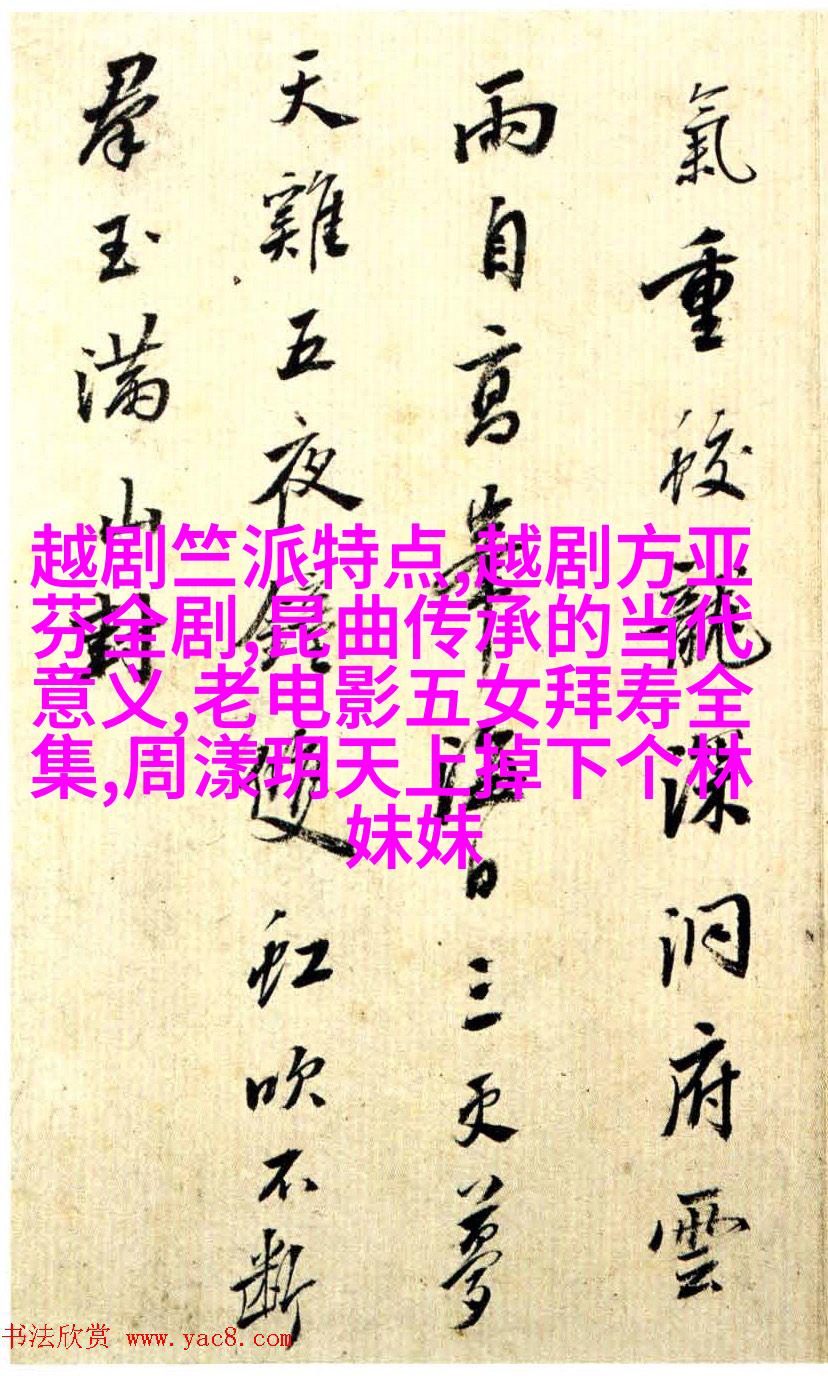 氣重蛟龍深洞府雲
雨自高峯日三更夢
天雞五夜鐘雙虹吹不斷
羣玉滿山封
越剧竺派特点,越剧方亚
芬全剧,昆曲传承的当代
意义,老电影五女拜寿全
集,周漾玥天上掉下个林
妹妹
书法欣赏 www.yac8.com